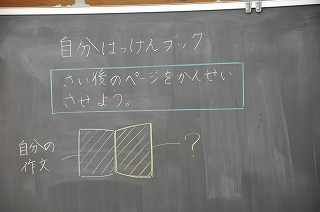 自分はっけんブック
さい後のページをかんせい
させよう。
自分の
作文
?